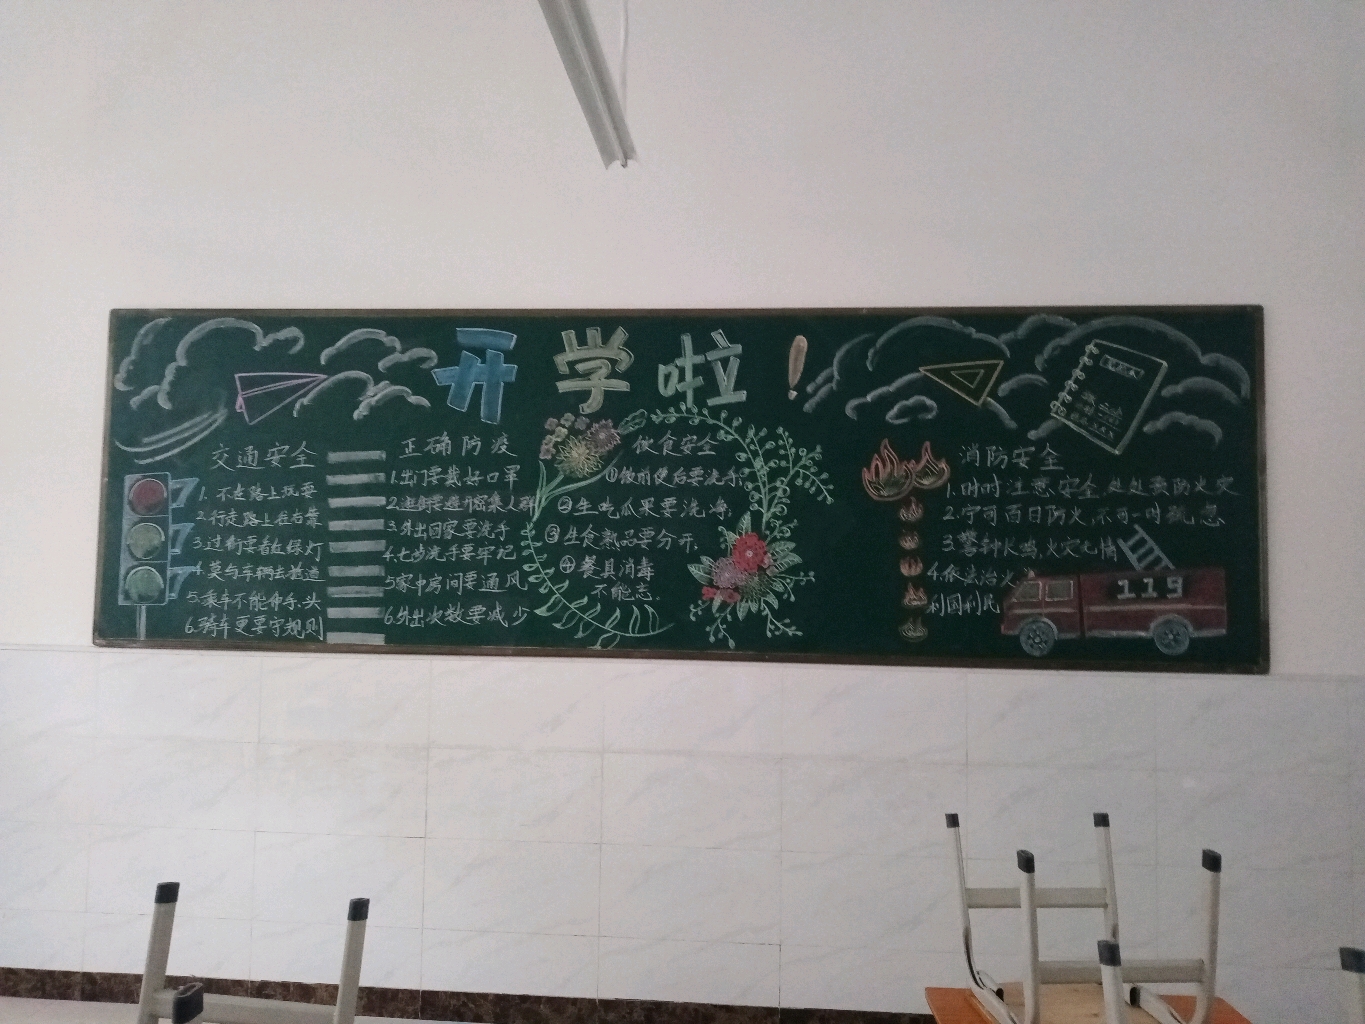 开学啦!
交通安全
1.不在路上玩耍
2.行走路上往右靠
3.过街要看红绿灯
4.莫与车辆去抢道
5.乘车不能伸手、头
6.骑车更要守规则
正确防疫
1.出门要戴好口罩
2.逛街要避开密集人群
3.外出回家要洗手
4.七步洗手要牢记
5家中房间要通风
6.外出次数要减少
饮食安全
①饭前便后要洗手;
②生吃瓜果要洗净;
③生食熟品要分开;
④餐具消毒
不能忘。
消防安全
1.时时注意安全,处处预防火灾
2.宁可百日防火,不可一时疏忽
3.警钟长鸣,火灾无情
4.依法治火
利国利民
119